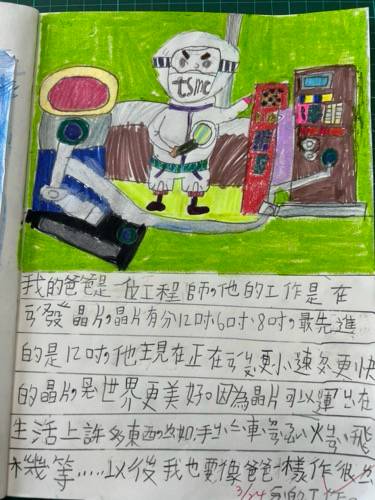 tsmc
我的爸爸是一位工程師。他的工作是在
發晶片。晶片有分12吋6吋8吋。最先進
的是12吋。他現在正在發更小速多更快
的晶片。是世界更美好。因為晶片可以運在
生活上許多東西。手火飛
機等.....以後我也要像爸爸一樣作很
3/24